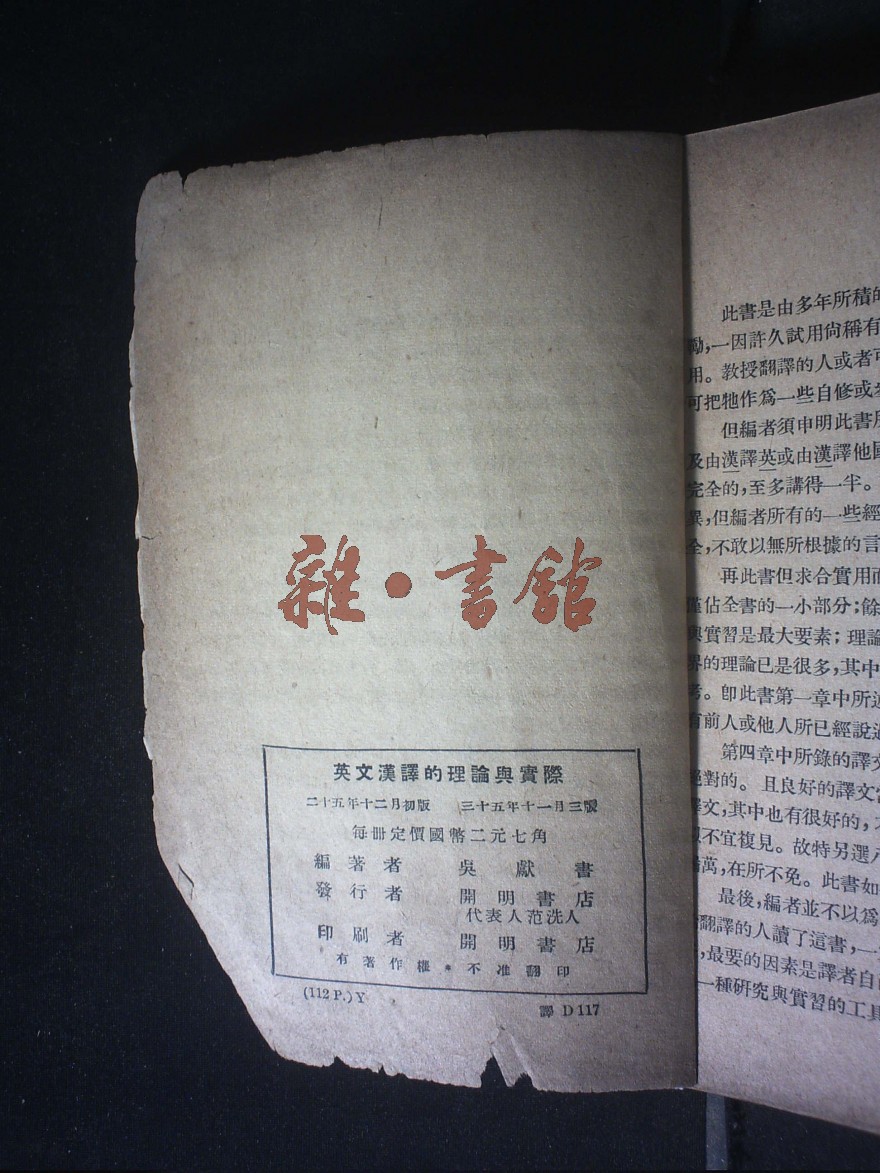 雜·書館
英文漢譯的理論與實際
二十五年十二月初版 三十五年十一月三版
每冊定價國幣二元七角
編著者 吳獻書
發行者 開明書店
代表人范洗人
印刷者 開明書店
有著作權*不准翻印
(112 P.) Y 譯 D 117
此書是由多年所積的
勵,一因許久試用尙稱有
用。敎授翻譯的人或者可
可把牠作爲一些自修或
但編者須申明此書
及由漢譯英或由漢譯他國
完全的,至多講得一半。
異,但編者所有的一些經
全,不敢以無所根據的言
再此書但求合實用而
僅佔全書的一小部分;餘
與實習是最大要素;理論
界的理論已是很多,其中
考。卽此書第一章中所
有前人或他人所已經說過
第四章中所錄的譯文
絕對的。且良好的譯文
譯文,其中也有很好的,
不宜複見。故特另選
萬,在所不免。此書如
最後,編者並不以爲
翻譯的人讀了這書,一
,最要的因素是譯者自
一種研究與實習的工具